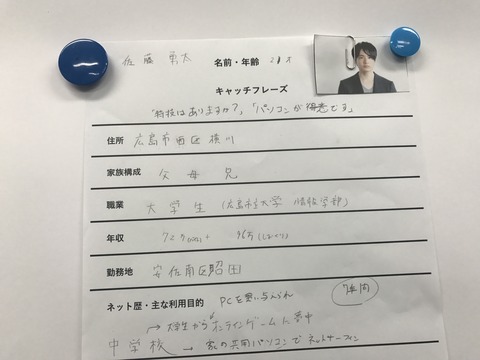 佐藤 勇太 名前・年齢 21才
キャッチフレーズ
「特技はありますか?」「パソコンが得意です」
住所 広島市西区横川
家族構成 父 母 兄
職業 大学生 (広島市立大学 情報学部)
年収
勤務地 安佐南区沼田
ネット歴・主な利用目的 PCを買い与えられ
大学生からオンラインゲームに夢中
中学校 → 家の共用パソコンでネットサーフィン